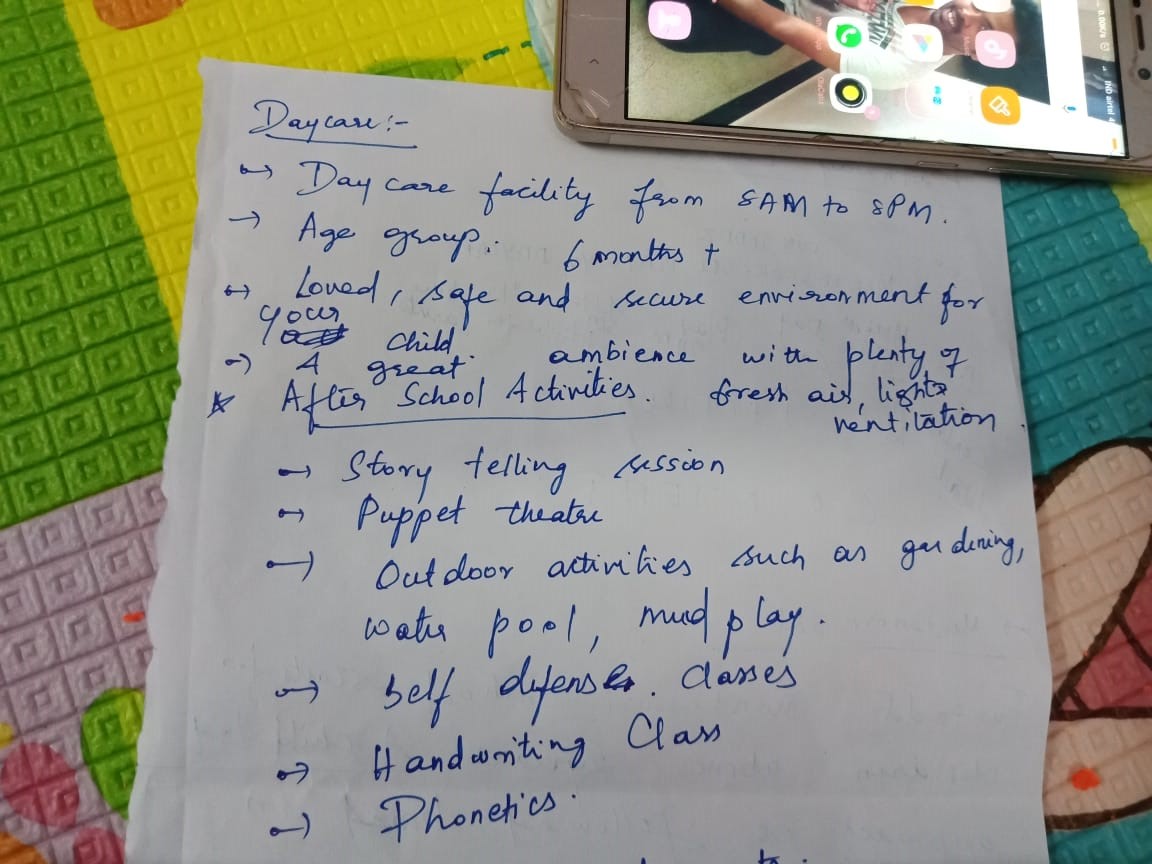 Daycare:-
→ Day care facility from 8AM to 8PM.
→ Age group. 6 months +
→ Loved, safe and secure environment for
your child.
→ A great. ambience with plenty of
fresh air, light & ventilation.
* After School Activities.
→ Story telling session
→ Puppet theatre
→ Outdoor activities such as gardening,
water pool, mud play.
→ Self defense. Classes
→ Handwriting Class
→ Phonetics.